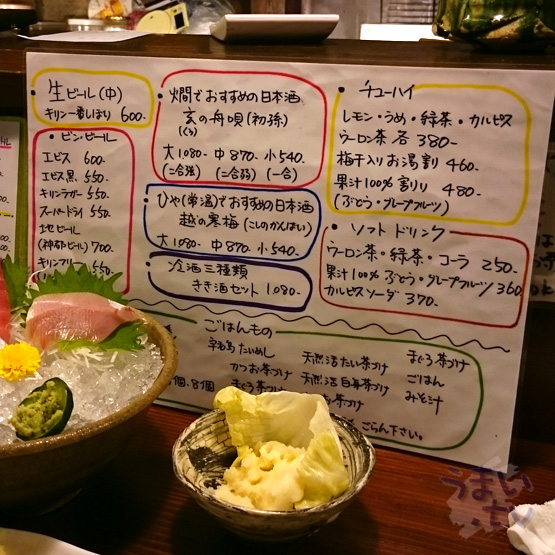 生ビール(中)
キリン一番しぼり 600-
・ビンビール
エビス 600-
エビス黒 550-
キリンラガー 550-
スーパードライ 550-
地ビール
(神都ビール) 700
キリンフリー
・燗でおすすめの日本酒
玄の舟唄(初孫)
(くろ)
大1080- 中870- 小540.
(二合強) (二合弱) (一合)
・ひや(常温)でおすすめの日本酒
越の寒梅(こしのかんばい)
大1080- 中870- 小540-
・冷酒三種類
きき酒セット 1,080-
・チューハイ
レモン・うめ・緑茶・カルピス
ウーロン茶 各380-
梅干入りお湯割 460-
果汁100%割り 480-
(ぶどう・グレープフルーツ)
・ソフトドリンク
ウーロン茶・緑茶・コーラ 250-
果汁100% ぶどう・グレープフルーツ 360
カルピスソーダ 370.
・ごはんもの
たいめし
かつお茶づけ
まぐろ茶づけ
天然活たい茶づけ
茶づけ
まぐろ茶づけ
ごはん
みそ汁
ごらん下さい。
うまい